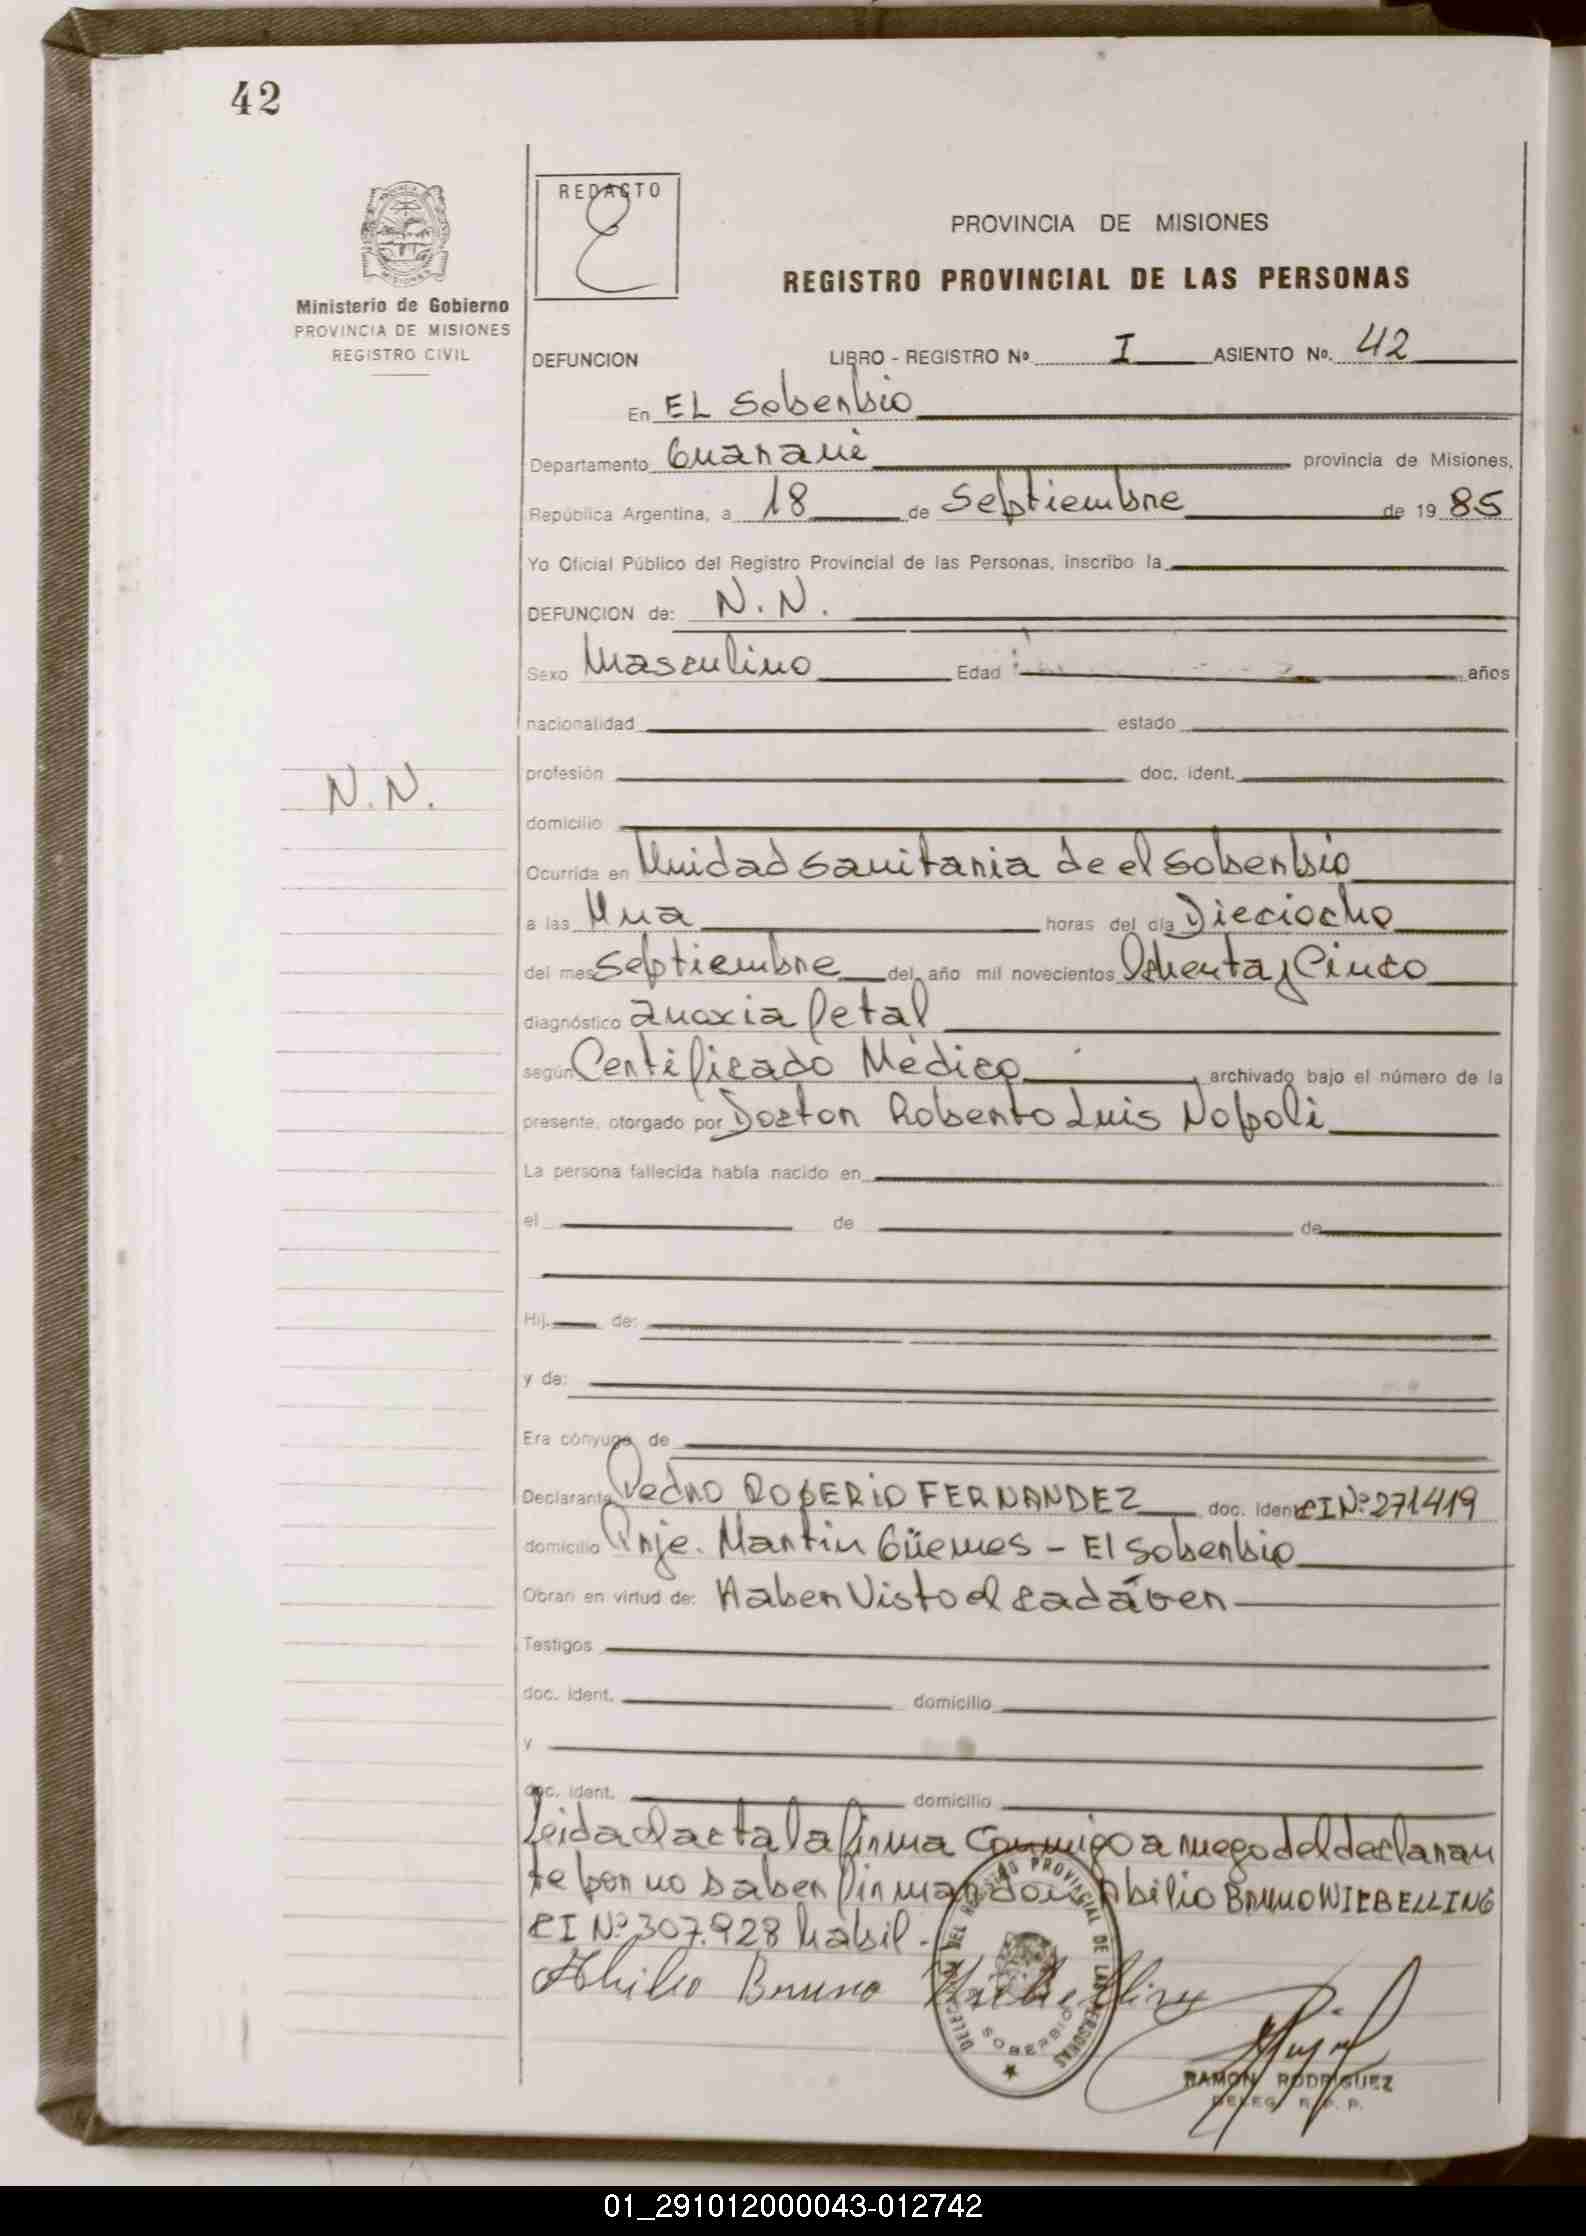 42
REDACTO
PROVINCIA DE MISIONES
REGISTRO PROVINCIAL DE LAS PERSONAS
Ministerio de Gobierno
PROVINCIA DE MISIONES
REGISTRO CIVIL
DEFUNCION LIBRO - REGISTRO Nº I ASIENTO No. 42
En EL Soberbio
Departamento Guaraní provincia de Misiones,
República Argentina, a 18 de Septiembre de 19 85
Yo Oficial Público del Registro Provincial de las Personas, inscribo la
DEFUNCION de: N.N.
Sexo Masculino Edad años
nacionalidad estado
profesión doc. ident.
N.N.
domicilio
Ocurrida en Unidad Sanitaria de el Soberbio
a las Una horas del día Dieciocho
del mes Septiembre del año mil novecientos Ochenta y Cinco
diagnóstico anoxia fetal
según Certificado Médico archivado bajo el número de la
presente, otorgado por Doctor Roberto Luis Nopoli
La persona fallecida había nacido en
el de de
Hij. de:
y de:
Era cónyuge de
Declarante Pedro ROGERIO FERNANDEZ doc. ident. CI Nº 271419
domicilio Prje. Martin Güemes - El Soberbio
Obran en virtud de: Haber Visto el cadáver
Testigos
doc. ident. domicilio
y
doc. ident. domicilio
Leida el acta la firma Conmigo a ruego del declaran
te por no saber firmar don Abilio Bruno WIEBELLING
CI Nº 307.928 habil.-
Abilio Bruno Wiebelling
DELEGACION DEL REGISTRO PROVINCIAL DE LAS PERSONAS
SOBERBIO
RAMON RODRIGUEZ
DELEG. R. P. P.
01_291012000043-012742